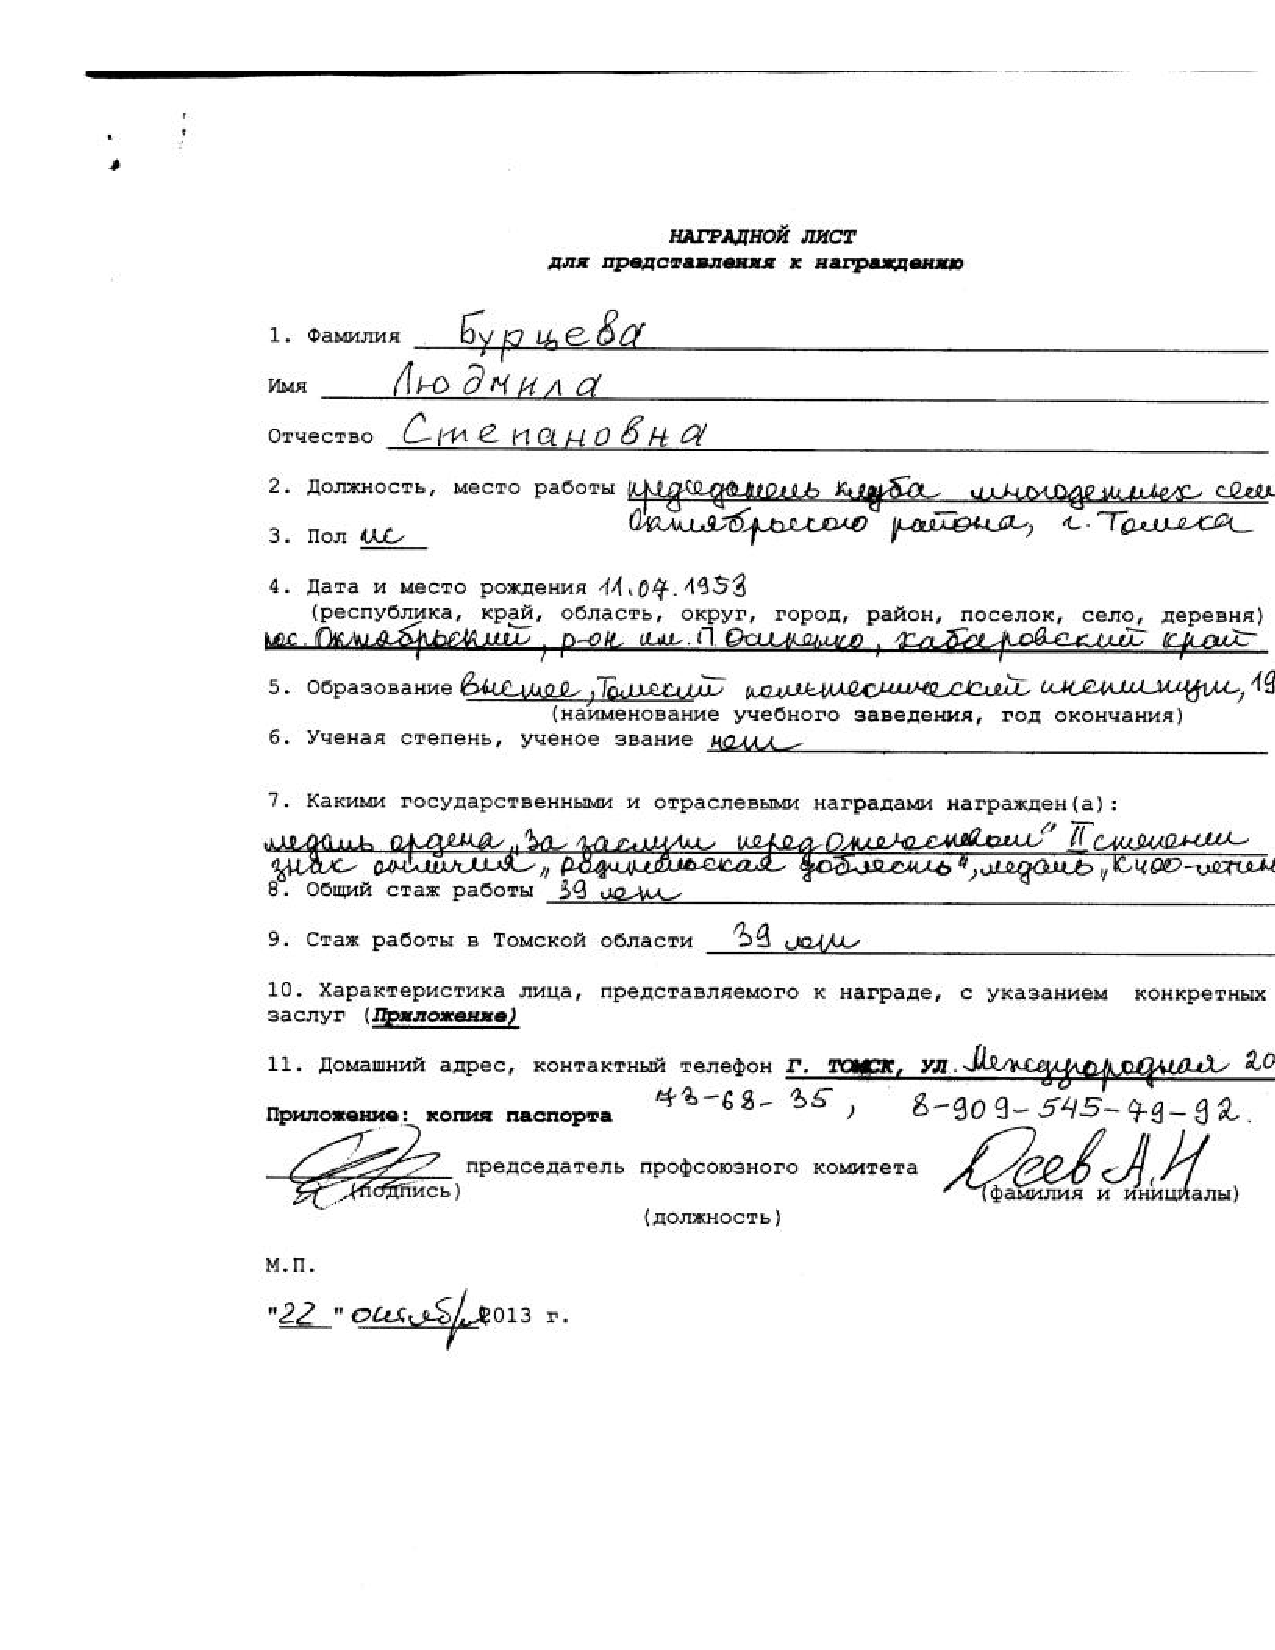 НАГРАДНОЙ ЛИСТ
для представления к награждению
1. Фамилия Бурцева
Имя Людмила
Отчество Степановна
2. Должность, место работы председатель клуба многодетных сем
Октябрьского района, г. Томска
3. Пол ж
4. Дата и место рождения 11.07.1953
(республика, край, область, округ, город, район, поселок, село, деревня)
пос. Октябрьский, р-он им. П. Осипенко, хабаровский край
5. Образование высшее, Томский политехнический институт, 19
(наименование учебного заведения, год окончания)
6. Ученая степень, ученое звание нет
7. Какими государственными и отраслевыми наградами награжден(а):
медаль ордена „За заслуги перед Отечеством" II степени
знак отличия „родительская доблесть", медаль „К 400-летию
8. Общий стаж работы 39 лет
9. Стаж работы в Томской области 39 лет
10. Характеристика лица, представляемого к награде, с указанием конкретных
заслуг (Приложение)
11. Домашний адрес, контактный телефон г. томск, ул. Междугородная 20
73-68-35, 8-909-545-79-92.
Приложение: копия паспорта
председатель профсоюзного комитета Осеев А.Н
(подпись) (фамилия и инициалы)
(должность)
М.П.
"22" октября 2013 г.